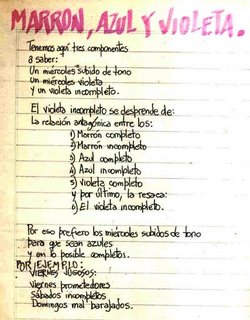 MARRON, AZUL Y VIOLETA.
Tenemos aquí tres componentes
a saber:
Un miércoles subido de tono
Un miércoles violeta
y un violeta incompleto.
El violeta incompleto se desprende de:
La relación antagónica entre los:
1) Marrón completo
2) Marrón incompleto
3) Azul completo
4) Azul incompleto
5) violeta completo
y por último, la resaca:
6) El violeta incompleto.
Por eso prefiero los miércoles subidos de tono
para que sean azules
y en lo posible completos.
POR EJEMPLO:
VIERNES JUGOSOS:
Viernes prometedores
Sábados incompletos
Domingos mal barajados.